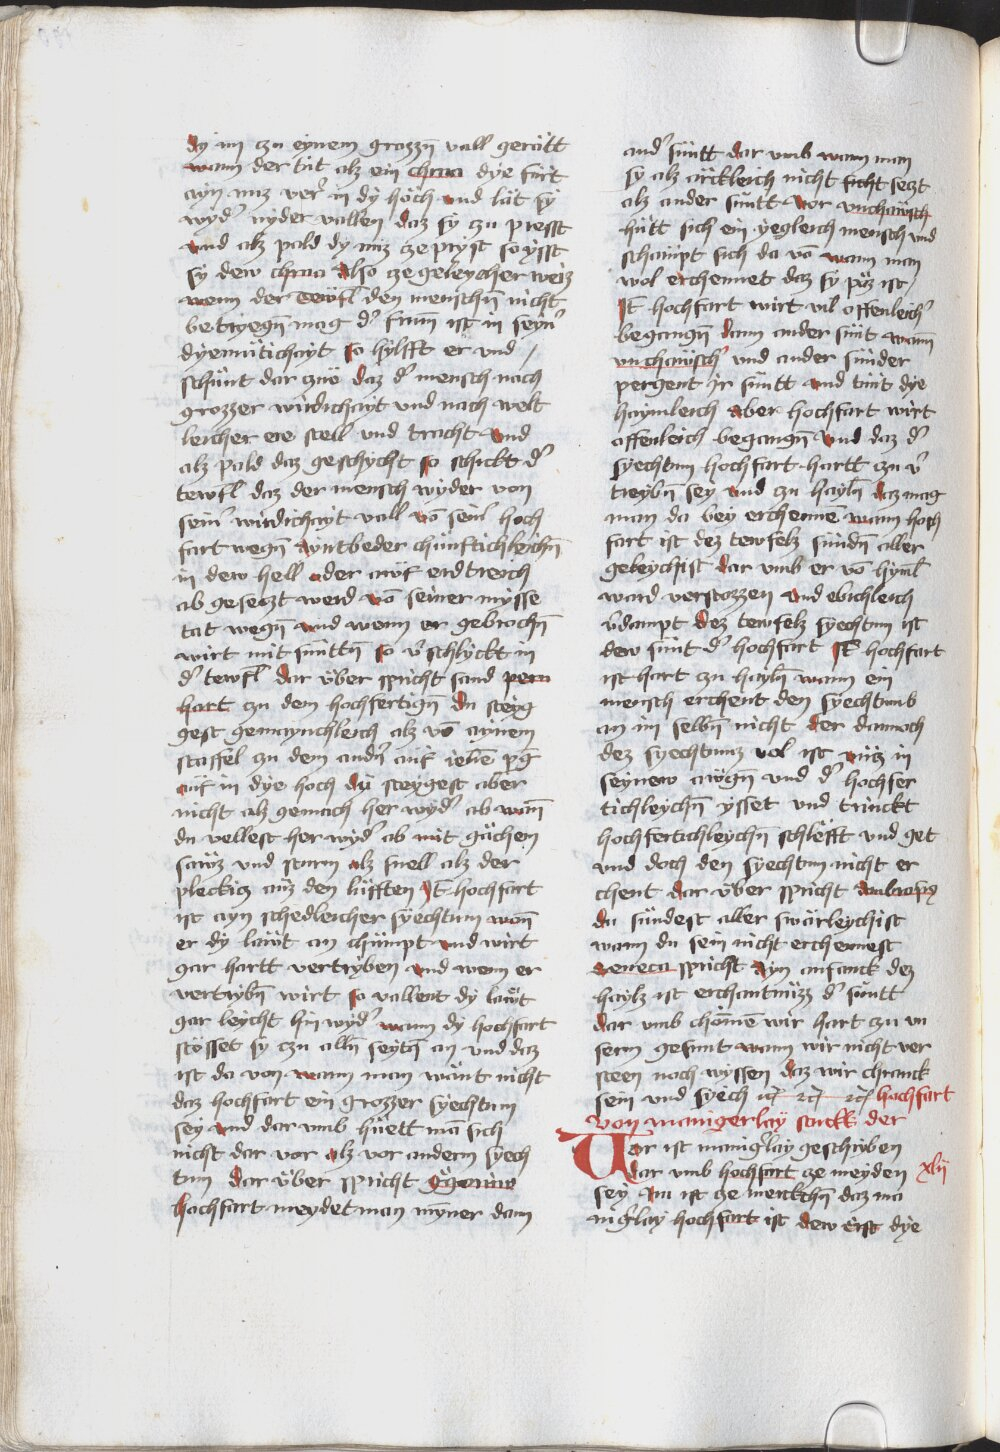 dy im czu eynem grozzn̄ vall geratt
wann der tut alz ein chraa dye fürt
ayn nuz ver in dy höch vnd lät sy
wyd' nyder vallen daz sy zu presst
vnd alz pald dy nuz ze pryst so ysst
sy dew chraa Also ze geleycher weiz
wenn der tewfl den menschn̄ nicht
betryegn̄ mag d' frum ist in seyn'
dyemütichayt so hylfft er vnd /
schünt dar zuo daz d' mensch nach
grozzer wirdichayt vnd nach welt
leicher ere stell vnd tracht vnd
alz pald daz geschycht so schickt d'
tewfl daz der mensch wyder von
sein' wirdichayt vall vō sein' hoch
fart wegn̄ ayntweder chünftichleichn̄
in dew hell oder auf erdtreich
ab gesetzt werd vō seiner mysse
tat wegn̄ vnd wenn er gebrochn̄
wirt mit süntn̄ so v'schlyckt in
d' tewfl dar über spricht sand pern
hart zu dem hochfertign̄ du steyg
gest gemaynchleich alz vō aynem
staffel zu dem andn̄ auf
auf in dye hoch du steygest aber
nicht alz gemach her wyd' ab wann̄
du vellest her wyd' ab mit gächem
sawz vnd sturm alz snell alz der
pleckicz auz den lüfften Jt̄ hochfart
ist ayn schedleicher syechtum wan̄
er dy läwt an chümpt vnd wirt
gar hartt vertryben vnd wenn er
vertrybn̄ wirt so vallent dy läwt
gar leycht hin wyd' wann dy hochfart
stösset sy zu alln̄ seytn̄ an vnd daz
ist da von wann man wänt nicht
daz hochfart ein grozzer syechtum
sey vnd dar vmb hüett mā sich
nicht dar vor alz vor andern syech
tum dar über spricht
hochfart meydet man myner dann
and' süntt dar vmb wann man
sy alz ärkleich nicht
alz ander süntt vor vnchäwsch
hütt sich ein yegleich mensch vnd
schampt sich da vō wann man
wol erchennet daz sy pöz ist /
Jt̄ hochfart wirt vil offenleich'
begangn̄ dann ander sünt wann̄
vnchäwsch' vnd ander sünder
pergent ir süntt vnd tuit dye
haymleich aber hochfart wirt
offenleich begangn̄ vnd daz d'
syechtum hochfart hartt zu v'
treybn̄ sey vnd zu hayln̄ daz mag
man da bey erchennē wann hoch
fart ist dez tewfelz sündn̄ aller
geleychist dar vmb er vō hyml
ward verstozzen vnd ebichleich
v'dampt dez tewfelz syechtum ist
dew sünt d' hochfart Jt̄ hochfart
ist hart zu hayln̄ wann ein
mensch erchent den syechtumb
an im selbn̄ nicht der dannoch
dez syechtumz vol ist vncz in
seynew awgn̄ vnd d' hochfer
tichleychn̄ ysset vnd trinckt
hochfertichleychn̄ schläfft vnd get
vnd doch den syechtum nicht er
chent dar über spricht
du sündest aller swärleychist
wann du sein nicht erchennest
Seneca spricht Ayn anfanck dez
haylz ist erchantnüzz d' süntt
dar vmb chömē wir hart zu vn
serm gesunt wann wir nicht ver
steen noch wyssen daz wir chranck
sein vnd syech
hochfart
von manigerlay stuckk der
Uor ist manig'lay geschriben
dar vmb hochfart ze meyden
xlij
sey Nu ist ze merckchn̄ daz ma
nig'lay hochfart ist dew erst dye